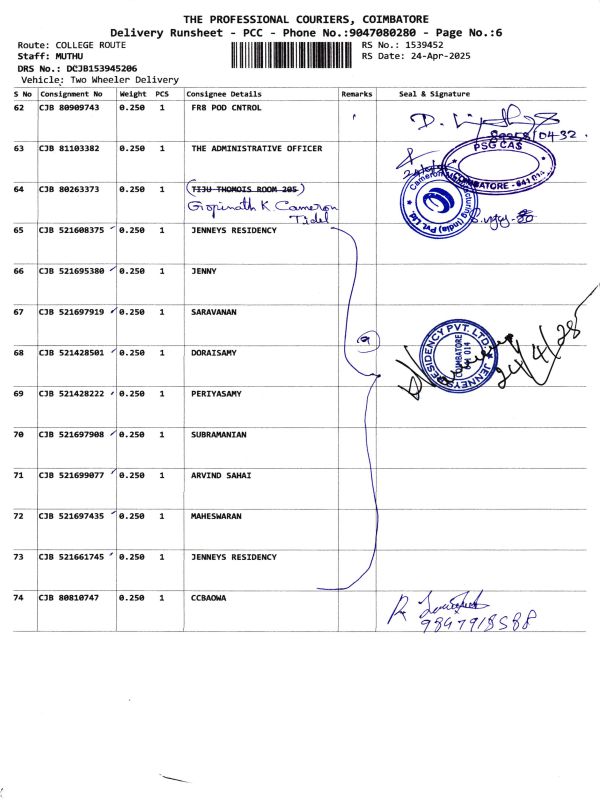 THE PROFESSIONAL COURIERS, COIMBATORE
Delivery Runsheet - PCC - Phone No.:9047080280 - Page No.:6
Route: COLLEGE ROUTE RS No.: 1539452
Staff: MUTHU RS Date: 24-Apr-2025
DRS No.: DCJB153945206
Vehicle: Two Wheeler Delivery
S No Consignment No Weight PCS Consignee Details Remarks Seal & Signature
62 CJB 80909743 0.250 1 FR8 POD CNTROL
63 CJB 81103382 0.250 1 THE ADMINISTRATIVE OFFICER
PSG CAS
COIMBATORE - 641 014
64 CJB 80263373 0.250 1 TIJU THOMOIS ROOM 205
Gopinath K Cameron
Tidel
65 CJB 521608375 0.250 1 JENNEYS RESIDENCY
66 CJB 521695380 0.250 1 JENNY
67 CJB 521697919 0.250 1 SARAVANAN
9
JENNEYS RESIDENCY PVT. LTD.
COIMBATORE
641 014
24/4/25
68 CJB 521428501 0.250 1 DORAISAMY
69 CJB 521428222 0.250 1 PERIYASAMY
70 CJB 521697908 0.250 1 SUBRAMANIAN
71 CJB 521699077 0.250 1 ARVIND SAHAI
72 CJB 521697435 0.250 1 MAHESWARAN
73 CJB 521661745 0.250 1 JENNEYS RESIDENCY
74 CJB 80810747 0.250 1 CCBAOWA